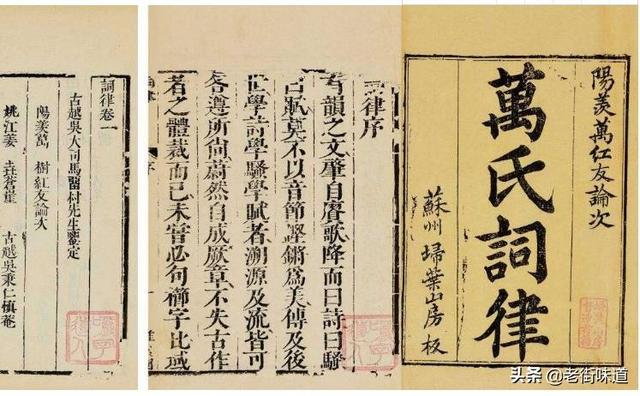 陽羨萬紅友論次
萬氏詞律
蘇州 埽葉山房板
詞律序
有韻之文肇自賡歌降而曰詩曰騷
曰賦莫不以音節鏗鏘爲美傳及後
世學詩學騷學賦者溯源及流皆可
各遵所尚蔚然自成厥章不失古作
者之體裁而已未嘗必句櫛字比域
詞律卷一
古越吳大司馬留村先生鑒定
陽羨萬 樹紅友論次
姚江姜 垚蒼崖 古越吳秉仁慎菴
头条 @老街味道